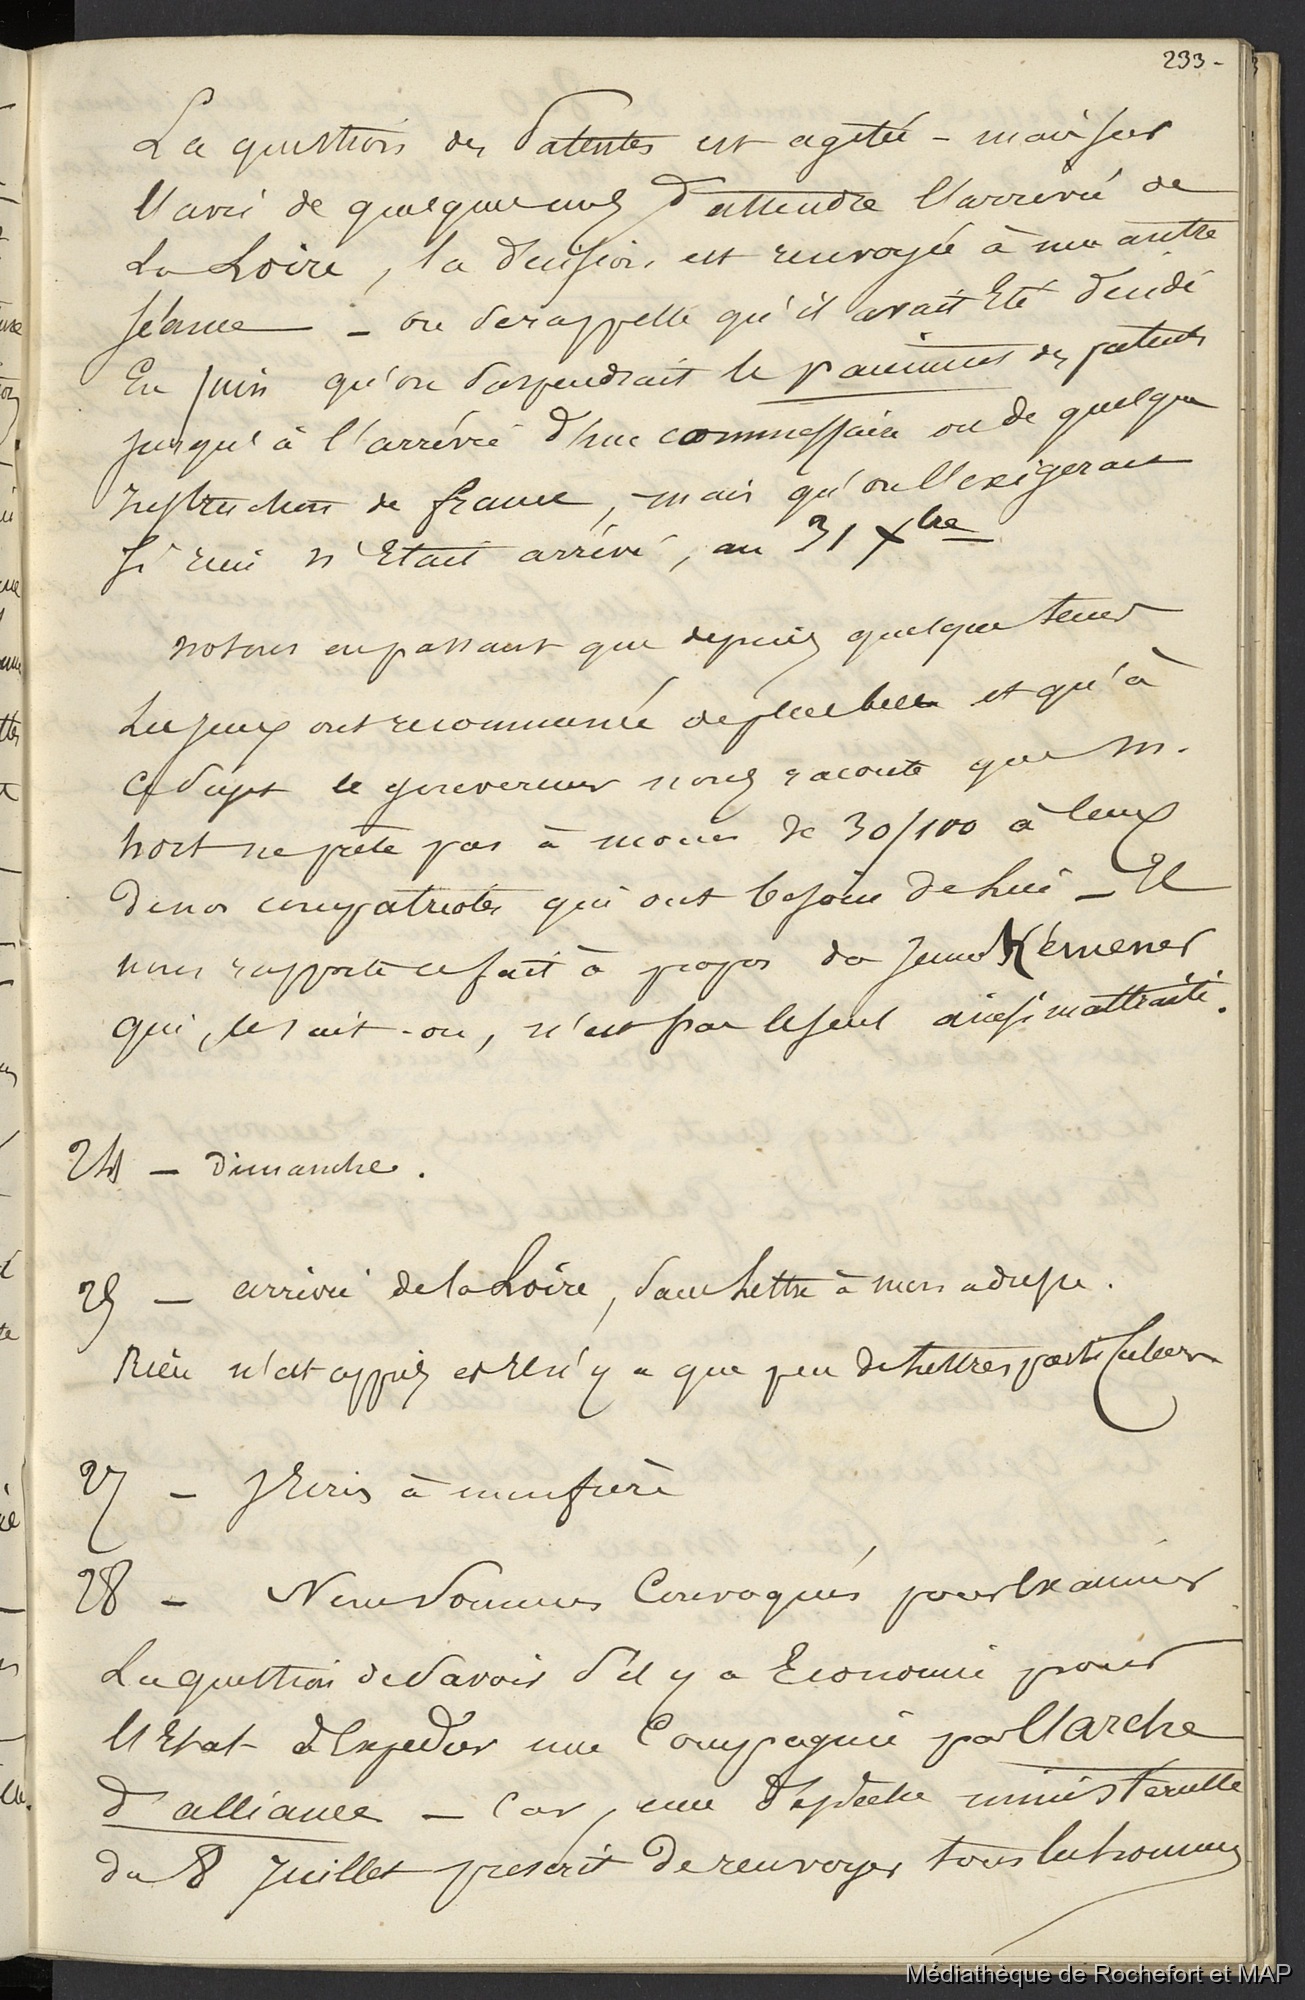 233-
La question des Patentes est agitée - mais sur
l'avis de quelques uns d'attendre l'arrivée de
La Loire, la décision est renvoyée à une autre
séance - on se rappelle qu'il avait été décidé
En Juin qu'on suspendrait le paiement des patentes
jusqu'à l'arrivée d'un commissaire ou de quelque
instruction de france, mais qu'on l'exigerait
si rien n'était arrivé, au 31 Xbre
notons en passant que depuis quelque tems
Les jeux ont recommencé de plus belle et qu'à
ce sujet le gouverneur nous raconte que M.
hort ne prête pas à moins de 30/100 à ceux
de nos compatriotes qui ont besoin de lui - Il
nous rapporte ce fait à propos du jeune Kérnener
qui, le sait-on, n'est pas le seul ainsi maltraité.
24 - Dimanche.
25 - arrivée de la Loire, sans Lettre à mon adresse.
Rien n'est appris et il n'y a que peu de Lettres particulières
27 - J'Ecris à mon frère
28 - Nous sommes Convoqués pour Examiner
La question de savoir s'il y a Economie pour
l'Etat à Expédier une Compagnie par l'arche
d'alliance - Car, une dépêche ministérielle
du 8 Juillet prescrit de renvoyer tous les hommes
Médiathèque de Rochefort et MAP